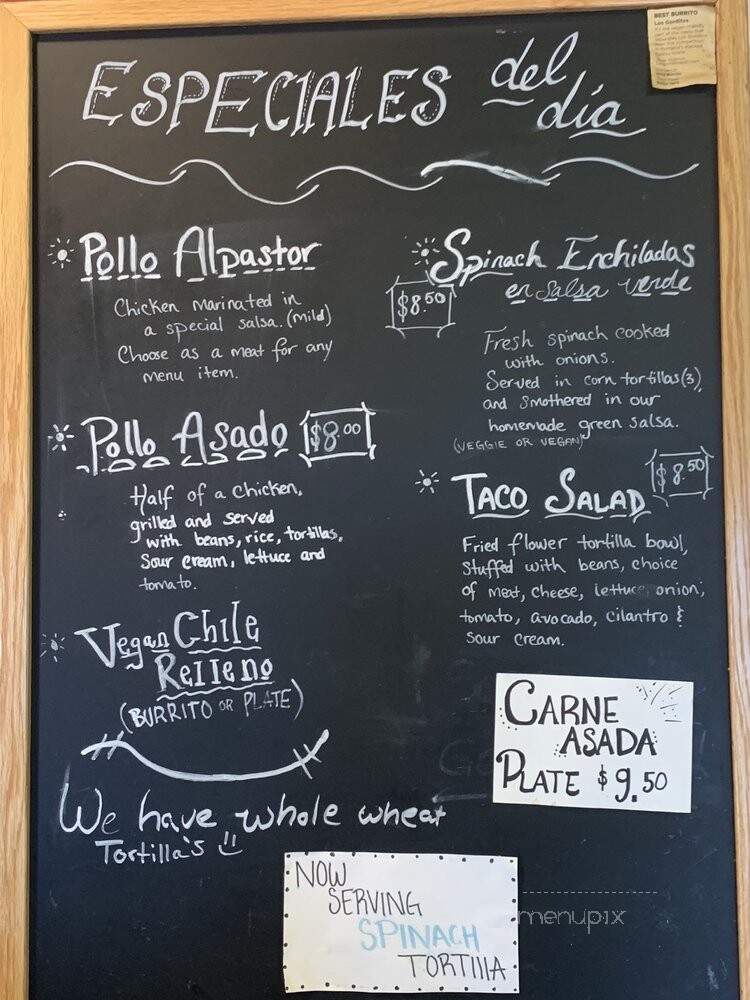 BEST BURRITO
Los Gorditos
ESPECIALES del día
Pollo Alpastor
Chicken marinated in
a special salsa. (mild)
Choose as a meat for any
menu item.
Pollo Asado $8.00
Half of a chicken,
grilled and served
with beans, rice, tortillas,
Sour cream, lettuce and
tomato.
Vegan Chile
Relleno
(BURRITO OR PLATE)
We have whole wheat
Tortilla's
Spinach Enchiladas
en salsa verde
$8.50
Fresh spinach cooked
with onions.
Served in corn tortillas (3),
and smothered in our
homemade green salsa.
(VEGGIE OR VEGAN)
TACO SALAD $8.50
Fried flower tortilla bowl,
stuffed with beans, choice
of meat, cheese, lettuce onion,
tomato, avocado, cilantro &
sour cream.
CARNE
ASADA
PLATE $9.50
NOW
SERVING
SPINACH
TORTIllA
menupix